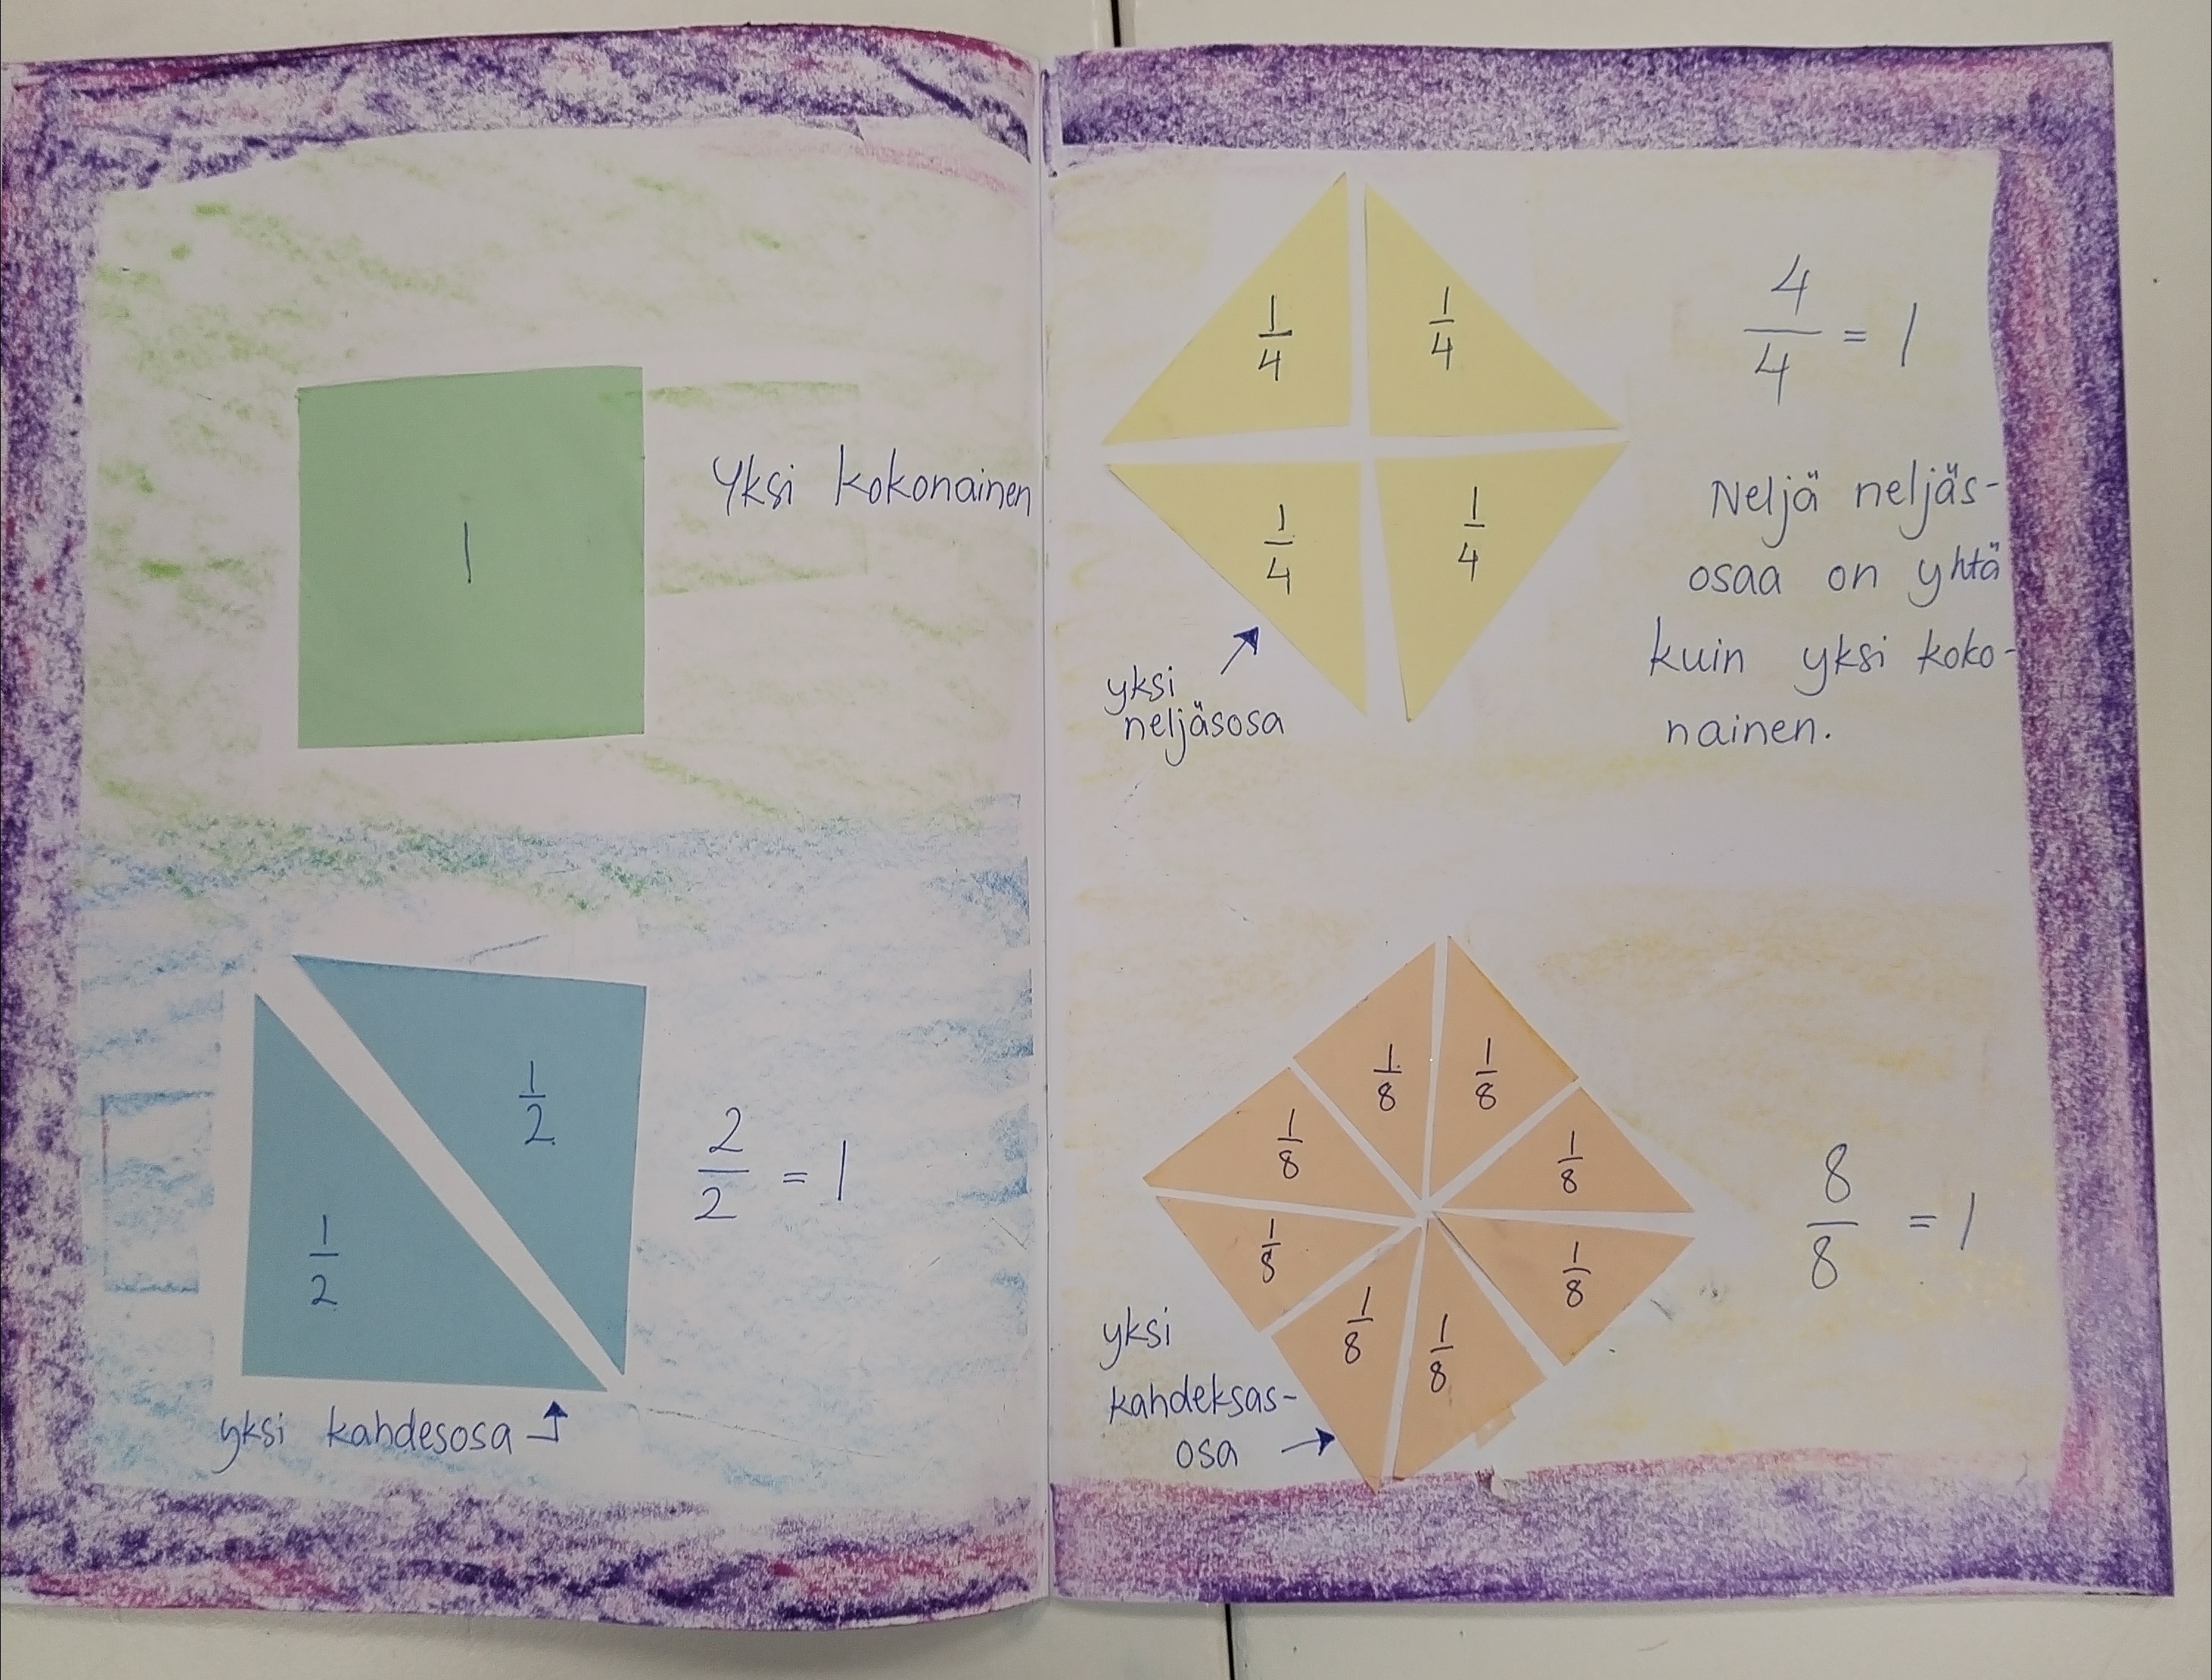 1
Yksi kokonainen
1/2
1/2
2/2 = 1
yksi kahdesosa
1/4 1/4
1/4 1/4
4/4 = 1
yksi
neljäsosa
Neljä neljäs-
osaa on yhtä
kuin yksi koko-
nainen.
1/8 1/8
1/8 1/8
1/8 1/8
1/8 1/8
8/8 = 1
yksi
kahdeksas-
osa